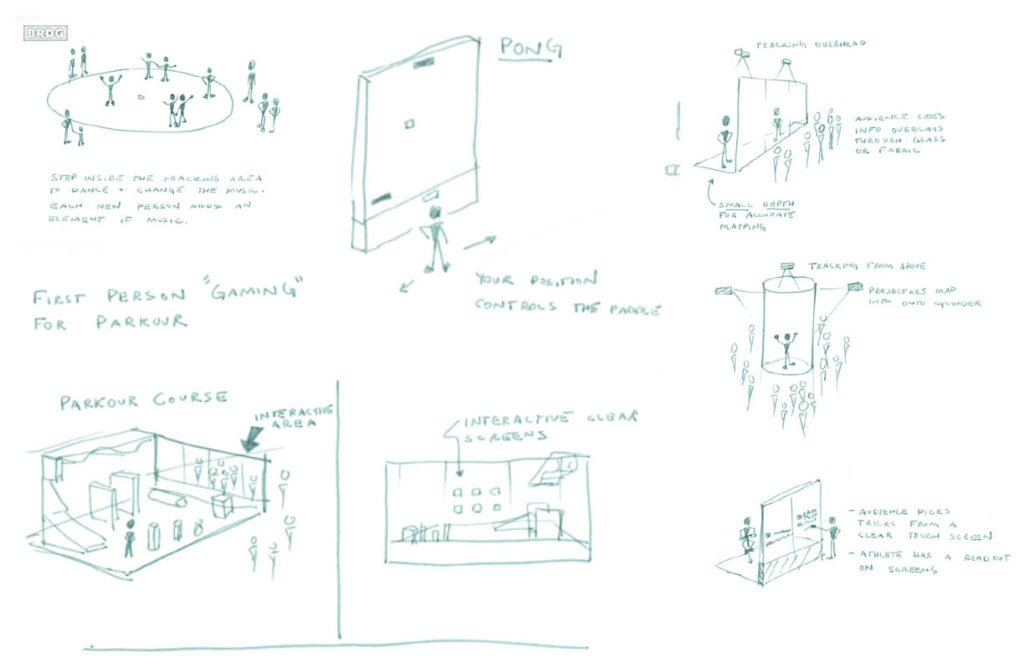 BRDG
STEP INSIDE THE TRACKING AREA
TO DANCE + CHANGE THE MUSIC.
EACH NEW PERSON ADDS AN
ELEMENT OF MUSIC.
PONG
YOUR POSITION
CONTROLS THE PADDLE
FIRST PERSON "GAMING"
FOR PARKOUR
PARKOUR COURSE
INTERACTIVE
AREA
INTERACTIVE CLEAR
SCREENS
TRACKING OVERHEAD
AUDIENCE SEES
INFO OVERLAYS
THROUGH GLASS
OR FABRIC
SMALL DEPTH
FOR ACCURATE
MAPPING
TRACKING FROM ABOVE
PROJECTORS MAP
INFO ONTO CYLINDER
- AUDIENCE PICKS
TRICKS FROM A
CLEAR TOUCH SCREEN
- ATHLETE HAS A READOUT
ON SCREENS